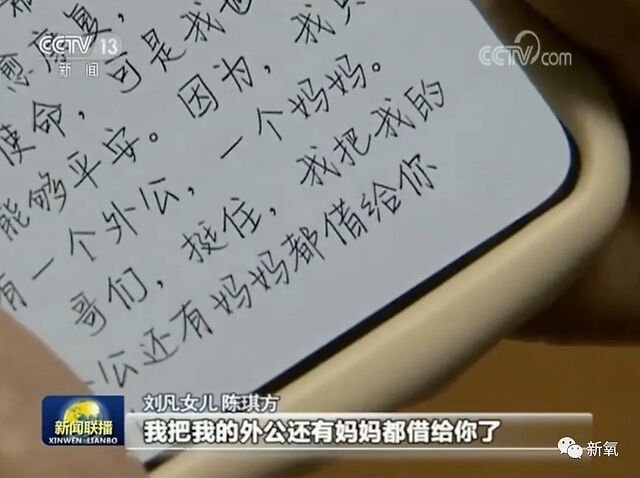 CCTV 13
新闻
CCTV.com
愈康复，
使命，可是我也
能够平安。因为，我只
有一个外公，一个妈妈。
哥们，挺住，我把我的
公还有妈妈都借给你
刘凡女儿 陈琪方
新闻联播
XINWEN LIANBO
我把我的外公还有妈妈都借给你了
新氧